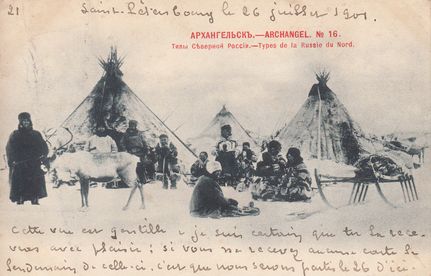 21 Saint-Pétersbourg le 26 juillet 1901.
АРХАНГЕЛЬСКЪ.—ARCHANGEL. № 16.
Типы Сѣверной Россіи.—Types de la Russie du Nord.
Cette vue est gentille & je suis certaine que tu la rece-
vras avec plaisir; si vous ne recevez aucune carte le
lendemain de celle-ci, c'est que nous serons partis le 26 d'ici